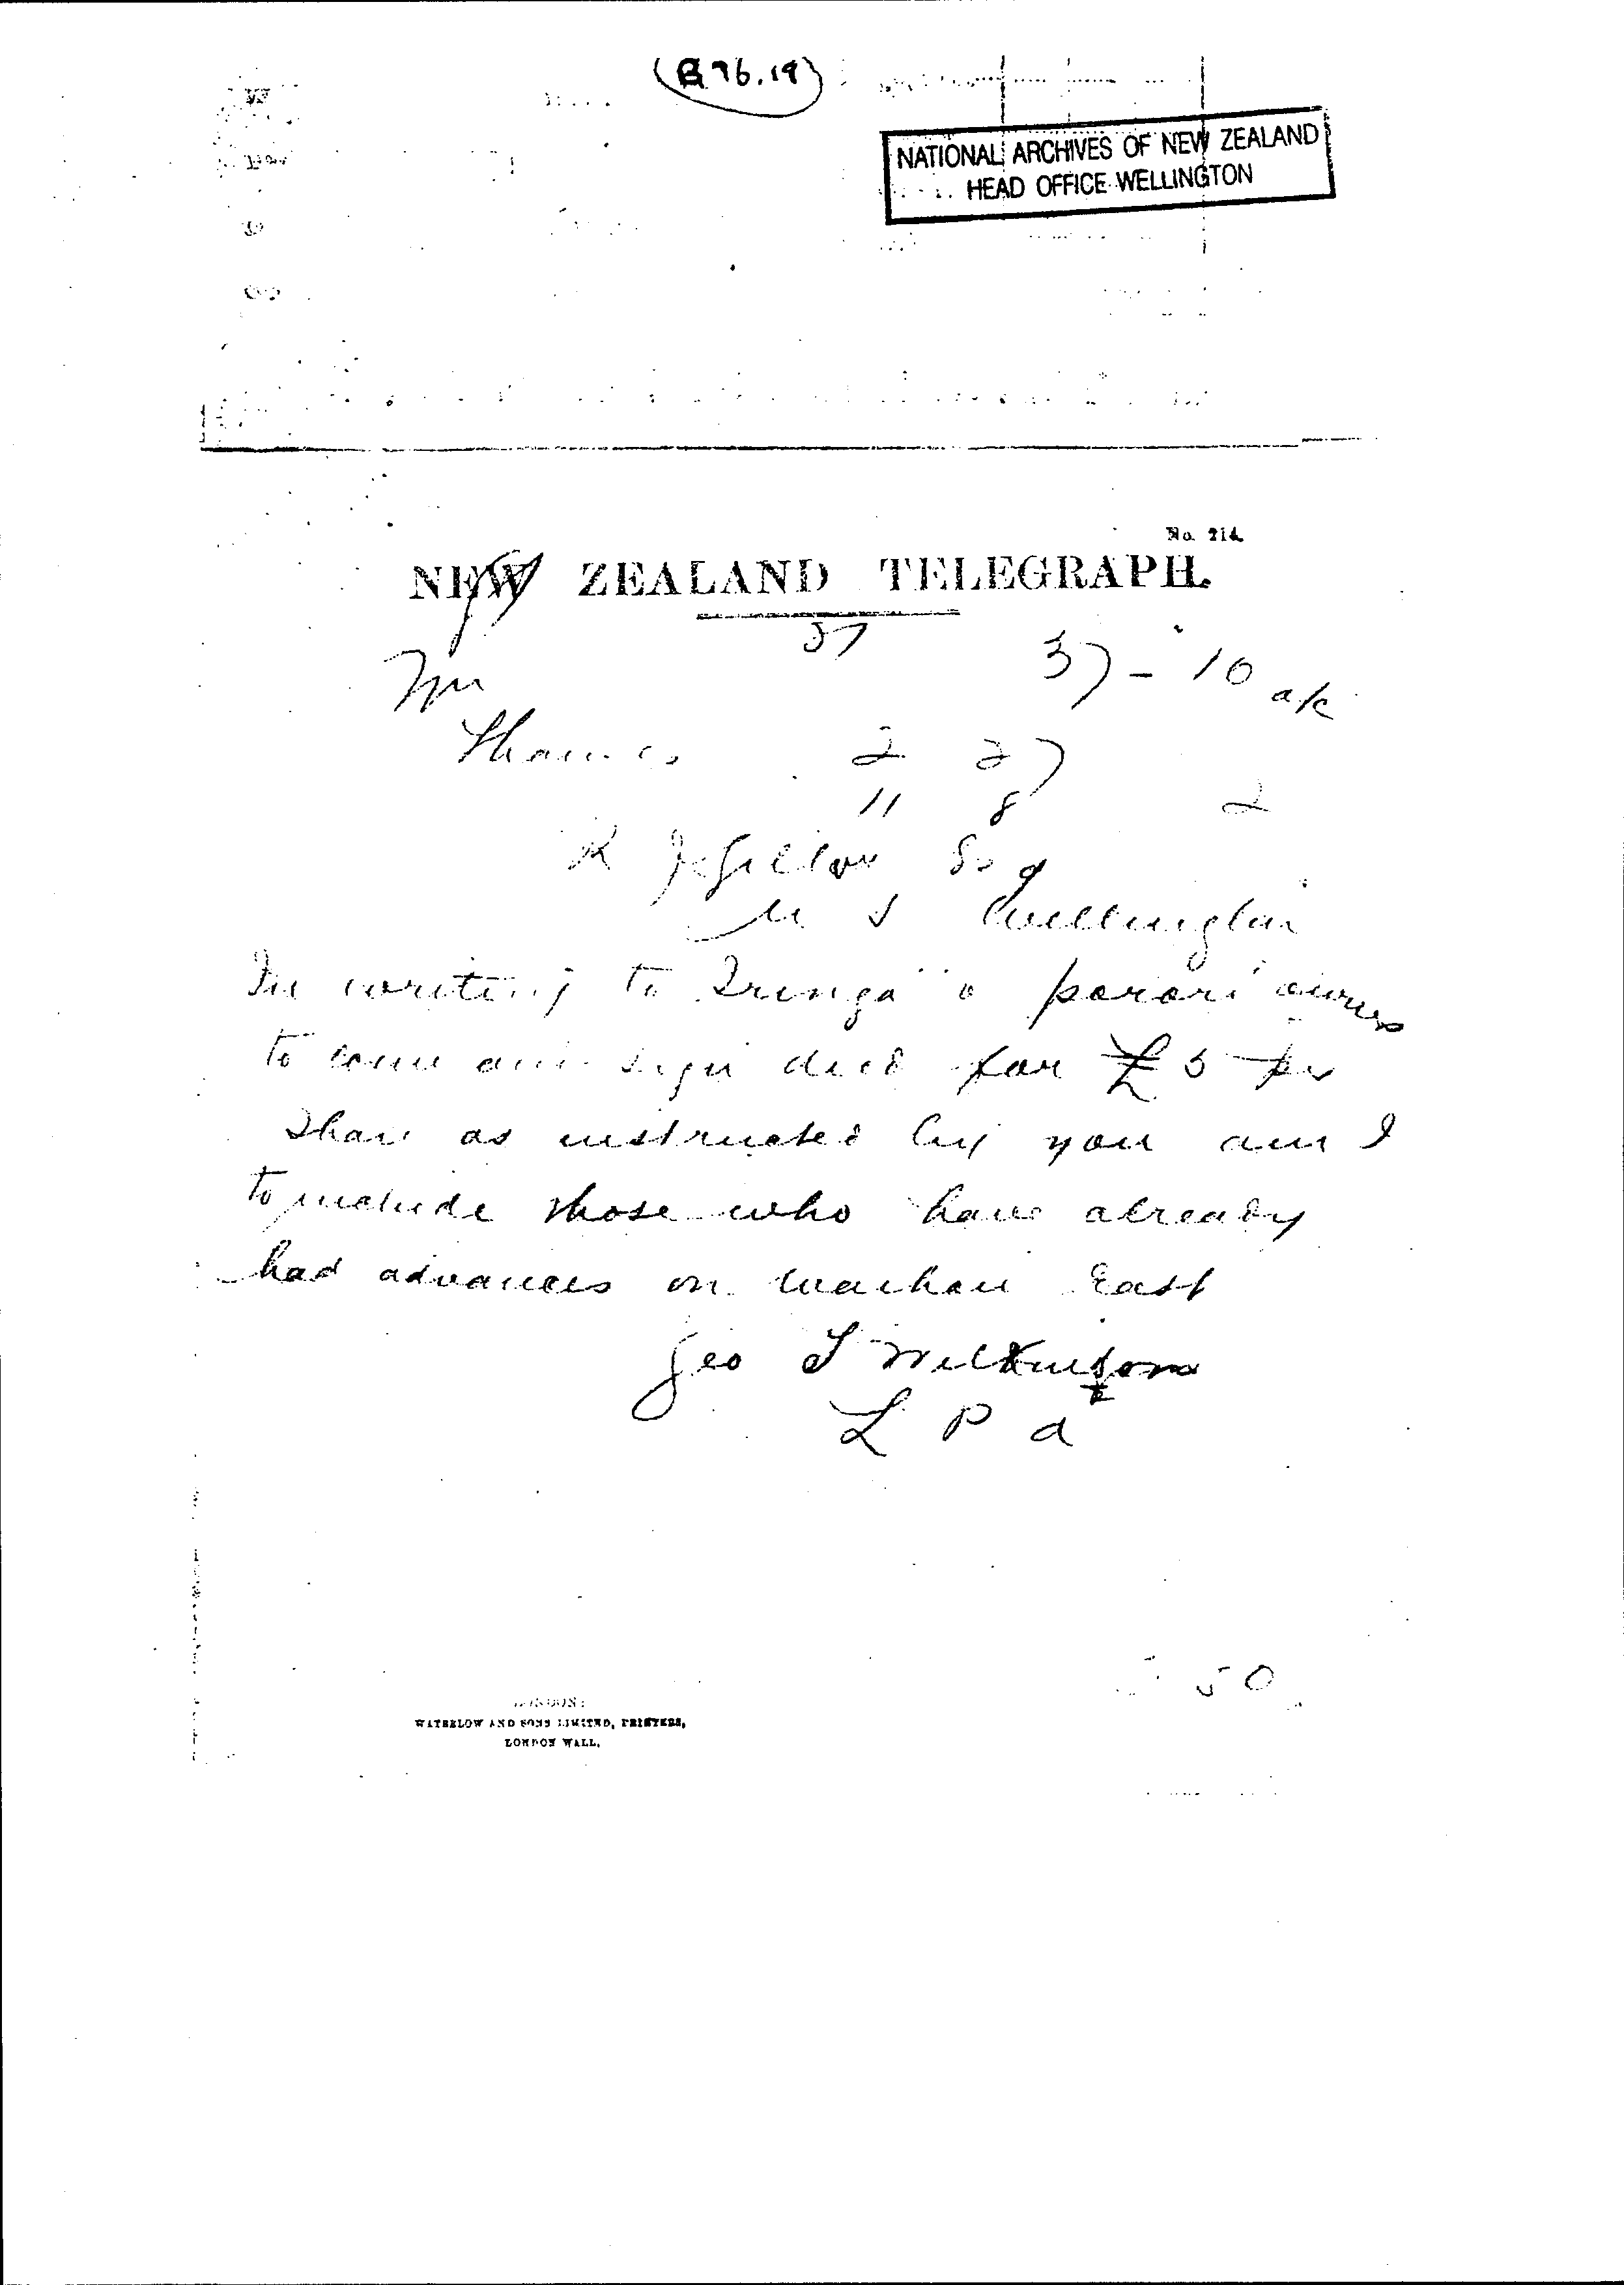 (B 76.19)
NATIONAL ARCHIVES OF NEW ZEALAND
HEAD OFFICE WELLINGTON
No. 214
NEW ZEALAND TELEGRAPH.
37
37 - 10 a/c
Thames 2 27
11 8 2
R J Gill Esq
Wellington
In writing to Iringa o parori owners
to come and sign deed for £5 per
Share as instructed by you am I
to include those who have already
had advances on Waihou East
Geo T Wilkinson
L P a
50
LONDON:
WATERLOW AND SONS LIMITED, PRINTERS,
LONDON WALL.